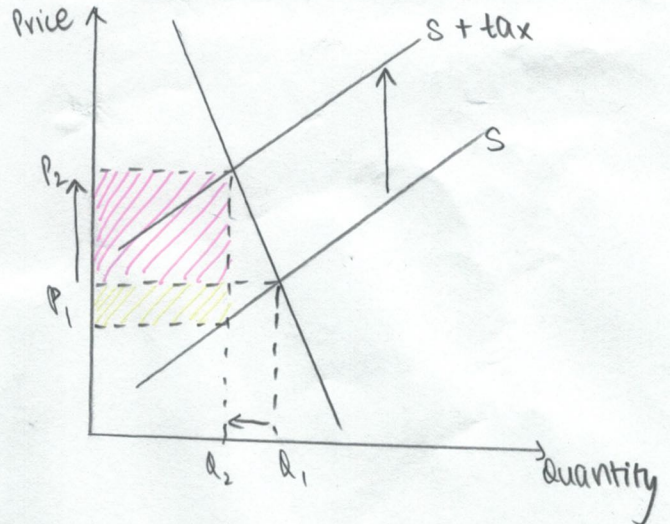 Price
S + tax
S
P2
P1
Q2
Q1
Quantity